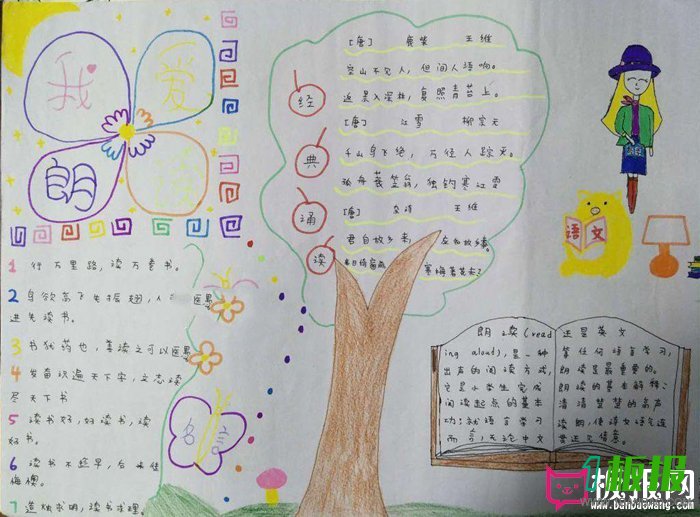 我
爱
朗
读
[唐] 鹿柴 王维
空山不见人，但闻人语响。
返景入深林，复照青苔上。
[唐] 江雪 柳宗元
千山鸟飞绝，万径人踪灭。
孤舟蓑笠翁，独钓寒江雪
[唐] 杂诗 王维
君自故乡来，应知故乡事。
来日绮窗前， 寒梅著花未？
经
典
诵
读
1 行万里路，读万卷书。
2 鸟欲高飞先振翅，人
进先读书。
3 书犹药也，善读之可以医愚
4 发奋识遍天下字，立志读
尽天下书
5 读书好，好读书，读
好书。
6 读书不趁早，后来徒
悔懊。
7 造烛求明，读书求理。
名
言
语文
朗读(read
ing aloud)，是一种
出声的阅读方式，
它是小学生完成
阅读起点的基本
功；就语言学习
而言，无论中文
还是英文
等任何语言学习，
朗读是最重要的。
朗读的基本解释：
清清楚楚的高声
读诵，使语文诗句连
贯
情意。
板报网
www.banbaowang.com